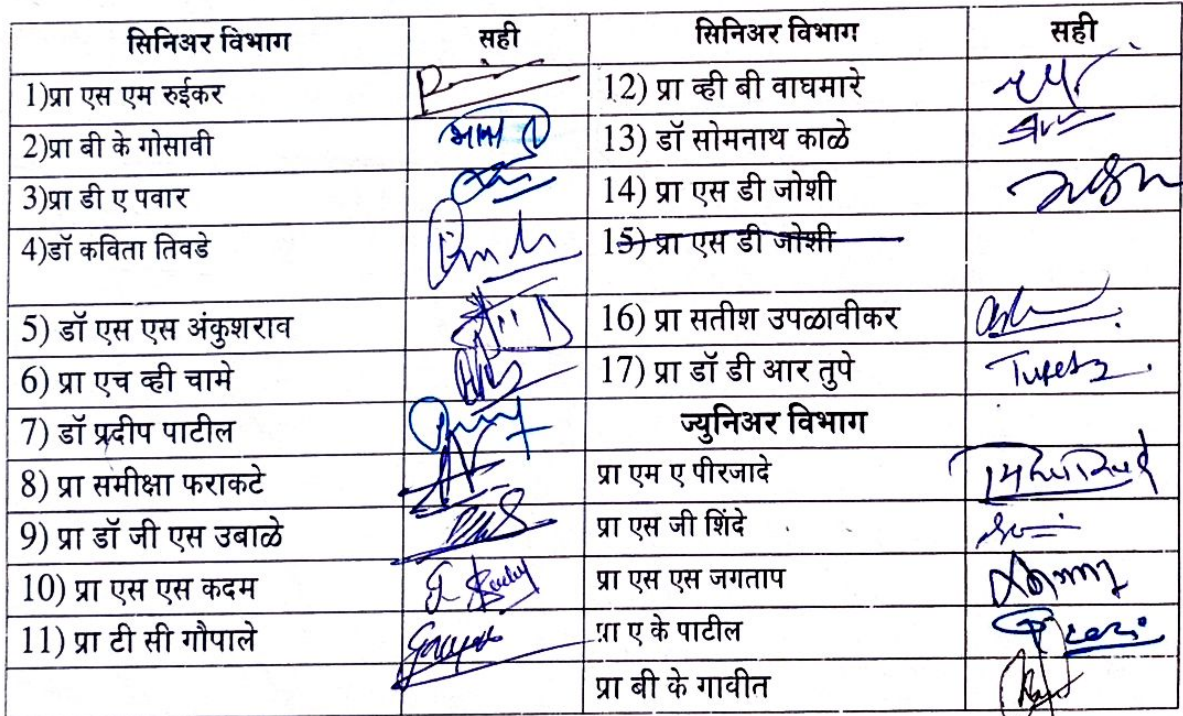 सिनिअर विभाग सही सिनिअर विभाग सही
1)प्रा एस एम रुईकर 12) प्रा व्ही बी वाघमारे
2)प्रा बी के गोसावी 13) डॉ सोमनाथ काळे
3)प्रा डी ए पवार 14) प्रा एस डी जोशी
4)डॉ कविता तिवडे 15) प्रा एस डी जोशी
5) डॉ एस एस अंकुशराव 16) प्रा सतीश उपळावीकर
6) प्रा एच व्ही चामे 17) प्रा डॉ डी आर तुपे
7) डॉ प्रदीप पाटील ज्युनिअर विभाग
8) प्रा समीक्षा फराकटे प्रा एम ए पीरजादे
9) प्रा डॉ जी एस उबाळे प्रा एस जी शिंदे
10) प्रा एस एस कदम प्रा एस एस जगताप
11) प्रा टी सी गौपाले प्रा ए के पाटील
प्रा बी के गावीत